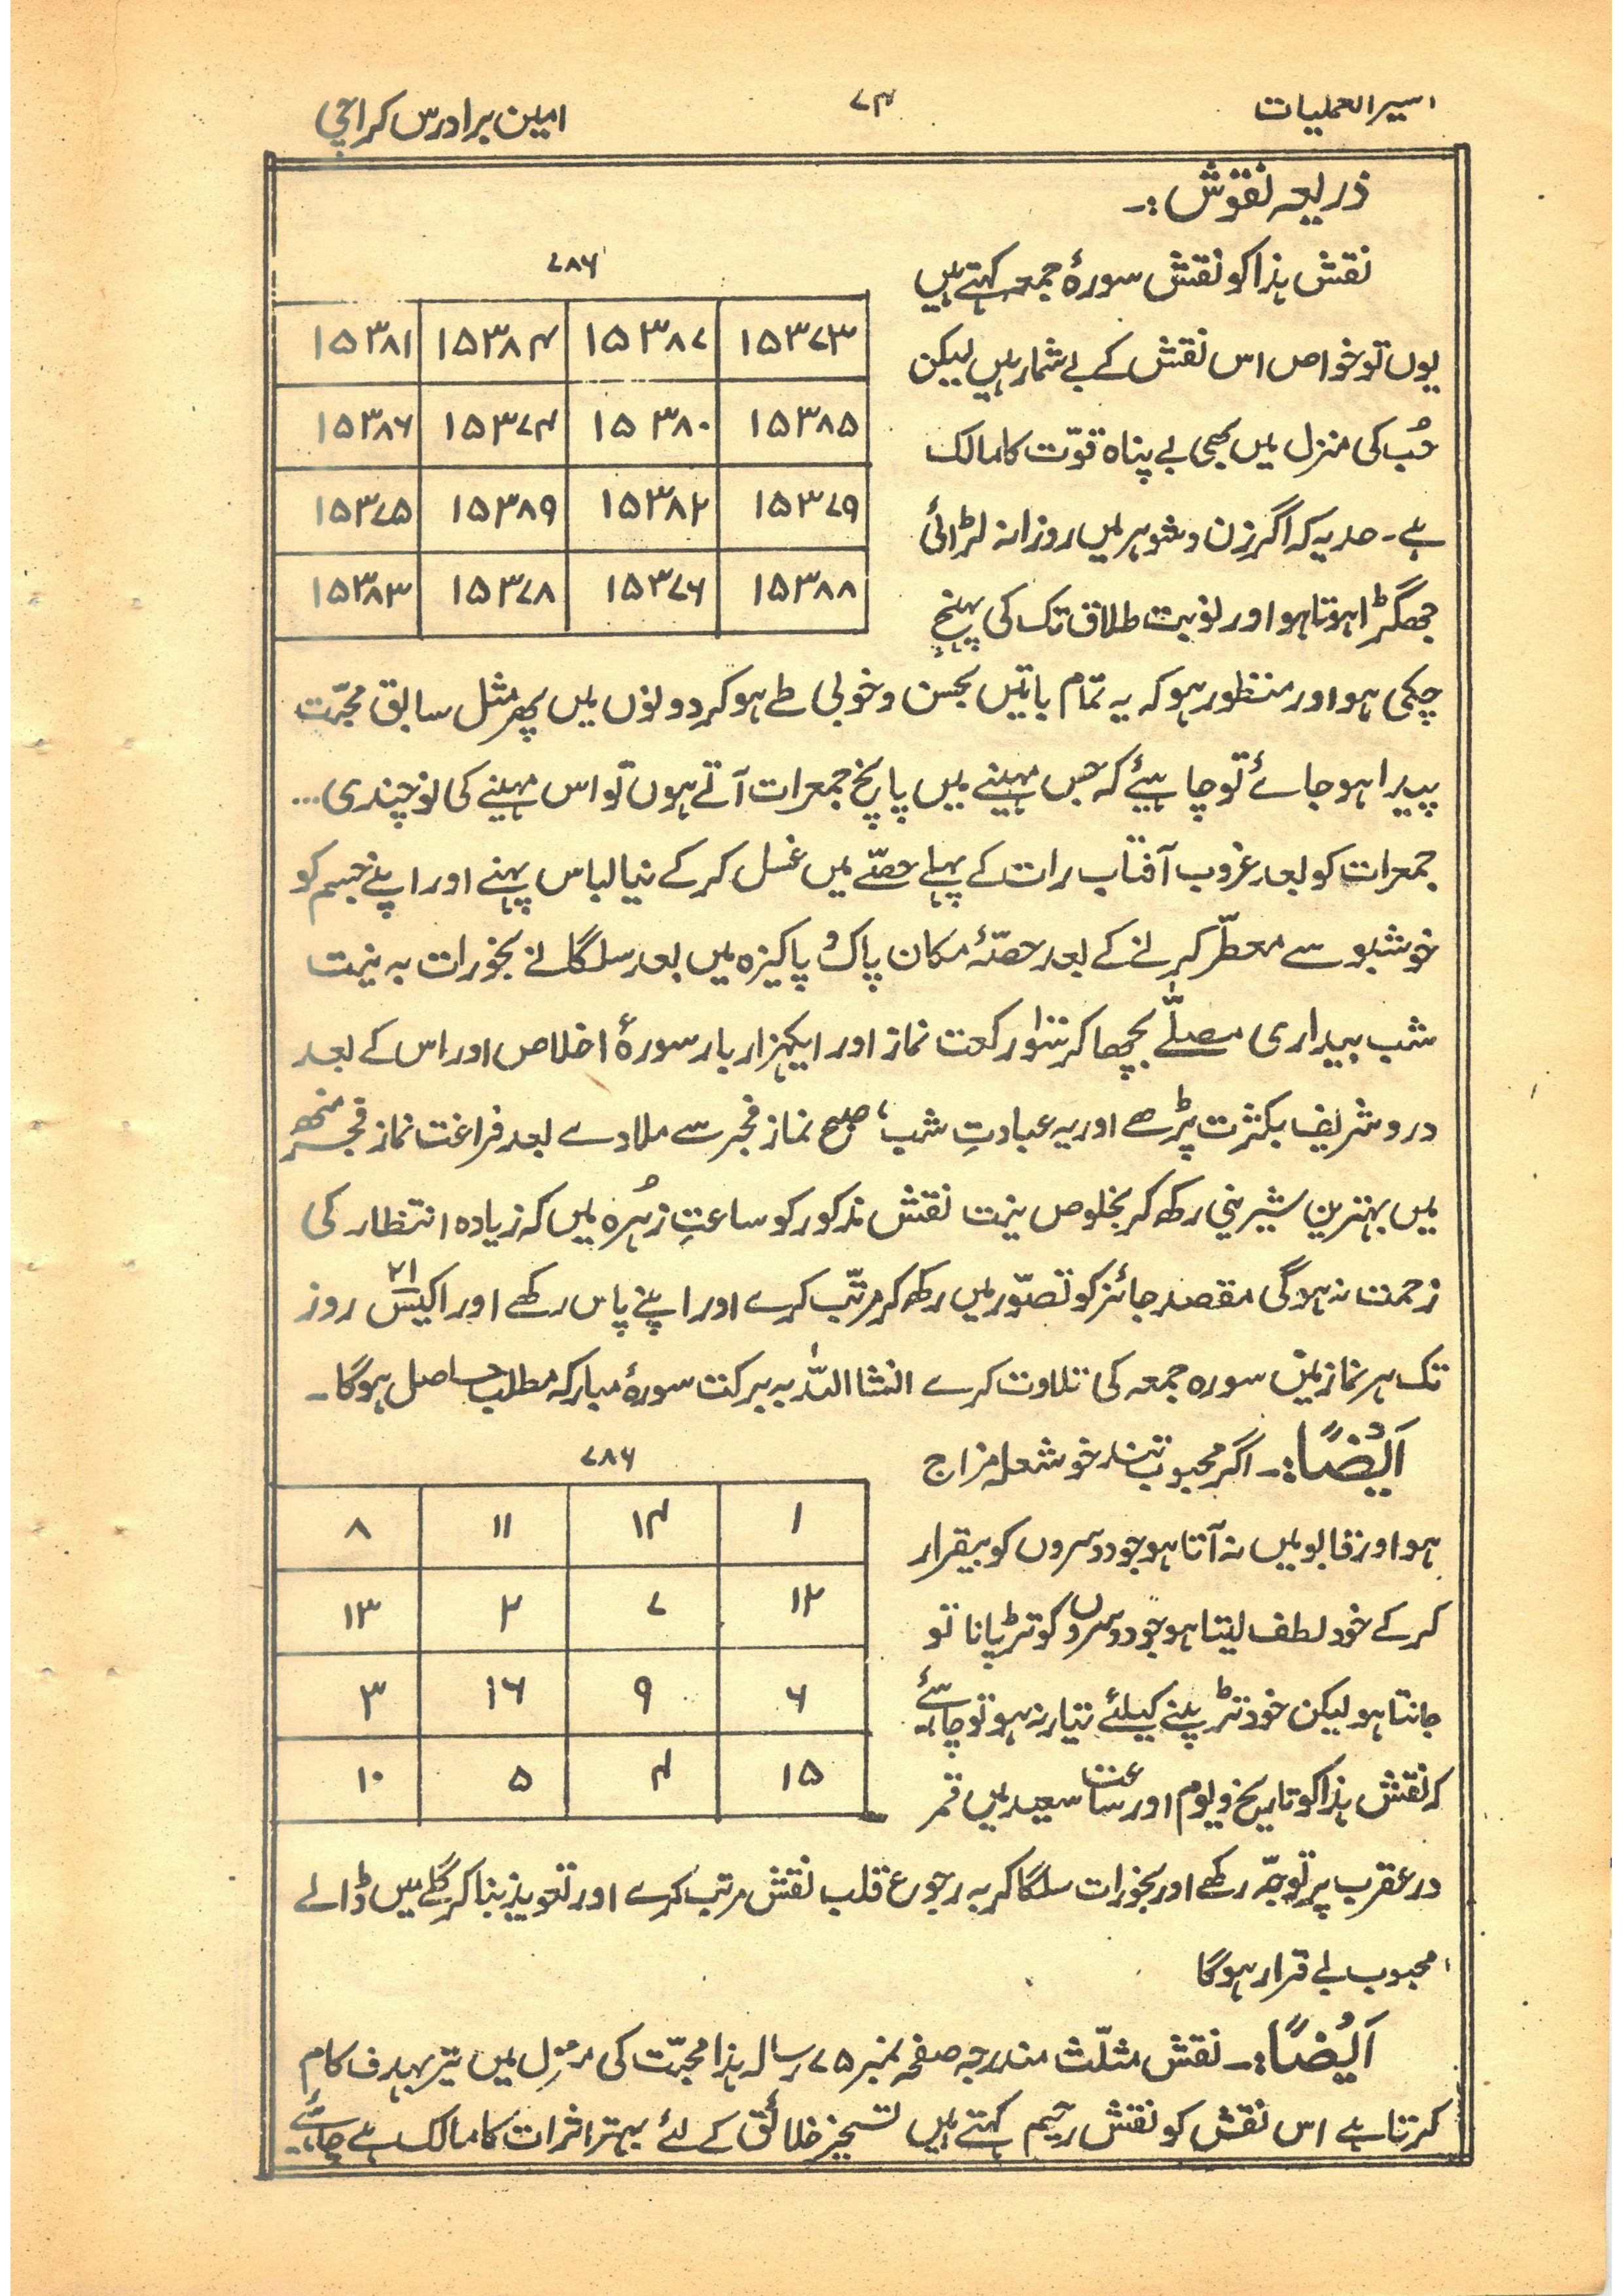 اسیر العملیات
۷۴
امین برادرس کراچی
ذریعہ نقوش:۔
نقش ہذا کو نقش سورۂ جمعہ کہتے ہیں
یوں تو خواص اس نقش کے بے شمار ہیں لیکن
حُب کی منزل میں بھی بے پناہ قوّت کا مالک
ہے۔ حد یہ کہ اگر زن و شوہر میں روزانہ لڑائی
جھگڑا ہوتا ہو اور نوبت طلاق تک کی پہنچ
۷۸۶
۱۵۳۷۳ ۱۵۳۸۷ ۱۵۳۸۴ ۱۵۳۸۱
۱۵۳۸۵ ۱۵۳۸۰ ۱۵۳۷۴ ۱۵۳۸۶
۱۵۳۷۹ ۱۵۳۸۲ ۱۵۳۸۹ ۱۵۳۷۵
۱۵۳۸۸ ۱۵۳۷۶ ۱۵۳۷۸ ۱۵۳۸۳
چکی ہو اور منظور ہو کہ یہ تمام باتیں بحسن و خوبی طے ہو کر دونوں میں پھر مثل سابق محبّت
پیدا ہو جائے تو چاہیئے کہ جس مہینے میں پانچ جمعرات آتے ہوں تو اس مہینے کی نوچندی...
جمعرات کو بعد غروب آفتاب رات کے پہلے حصّے میں غسل کر کے نیا لباس پہنے اور اپنے جسم کو
خوشبو سے معطّر کرنے کے بعد حصّۂ مکان پاک و پاکیزہ میں بعد سلگانے بخورات بہ نیت
شب بیداری مصلّے بچھا کر سَو رکعت نماز اور ایکہزار بار سورۂ اخلاص اور اس کے بعد
درود شریف بکثرت پڑھے اور یہ عبادتِ شب، صبح نماز فجر سے ملا دے بعد فراغت نماز فجر منھ
میں بہترین شیرینی رکھ کر بخلوص نیت نقش مذکور کو ساعتِ زُہرہ میں کہ زیادہ انتظار کی
زحمت نہ ہوگی مقصد جائز کو تصوّر میں رکھ کر مرتّب کرے اور اپنے پاس رکھے اور اکیس ۲۱ روز
تک ہر نماز میں سورہ جمعہ کی تلاوت کرے انشا اللہ بہ برکت سورۂ مبارکہ مطلب حاصل ہوگا۔
اَیْضًا:۔ اگر محبوب تند خو شعلہ مزاج
ہو اور قابو میں نہ آتا ہو جو دوسروں کو بیقرار
کر کے خود لطف لیتا ہو جو دوسروں کو تڑپانا تو
جانتا ہو لیکن خود تڑپنے کیلئے تیار نہ ہو تو چاہئے
کہ نقش ہذا کو تاریخ و یوم اور ساعت سعید میں قمر
۷۸۶
۱ ۱۴ ۱۱ ۸
۱۲ ۷ ۲ ۱۳
۶ ۹ ۱۶ ۳
۱۵ ۴ ۵ ۱۰
در عقرب پر توجّہ رکھے اور بخورات سلگا کر بہ رجوع قلب نقش مرتب کرے اور تعویذ بنا کر گلے میں ڈالے
محبوب بے قرار ہوگا
اَیْضًا:۔ نقش مثلّث مندرجہ صفحہ نمبر ۷۵ رسالہ ہذا محبّت کی منزل میں تیر بہدف کام
کرتا ہے اس نقش کو نقش رحیم کہتے ہیں تسخیر خلائق کے لئے بہتر اثرات کا مالک ہے چاہیئے